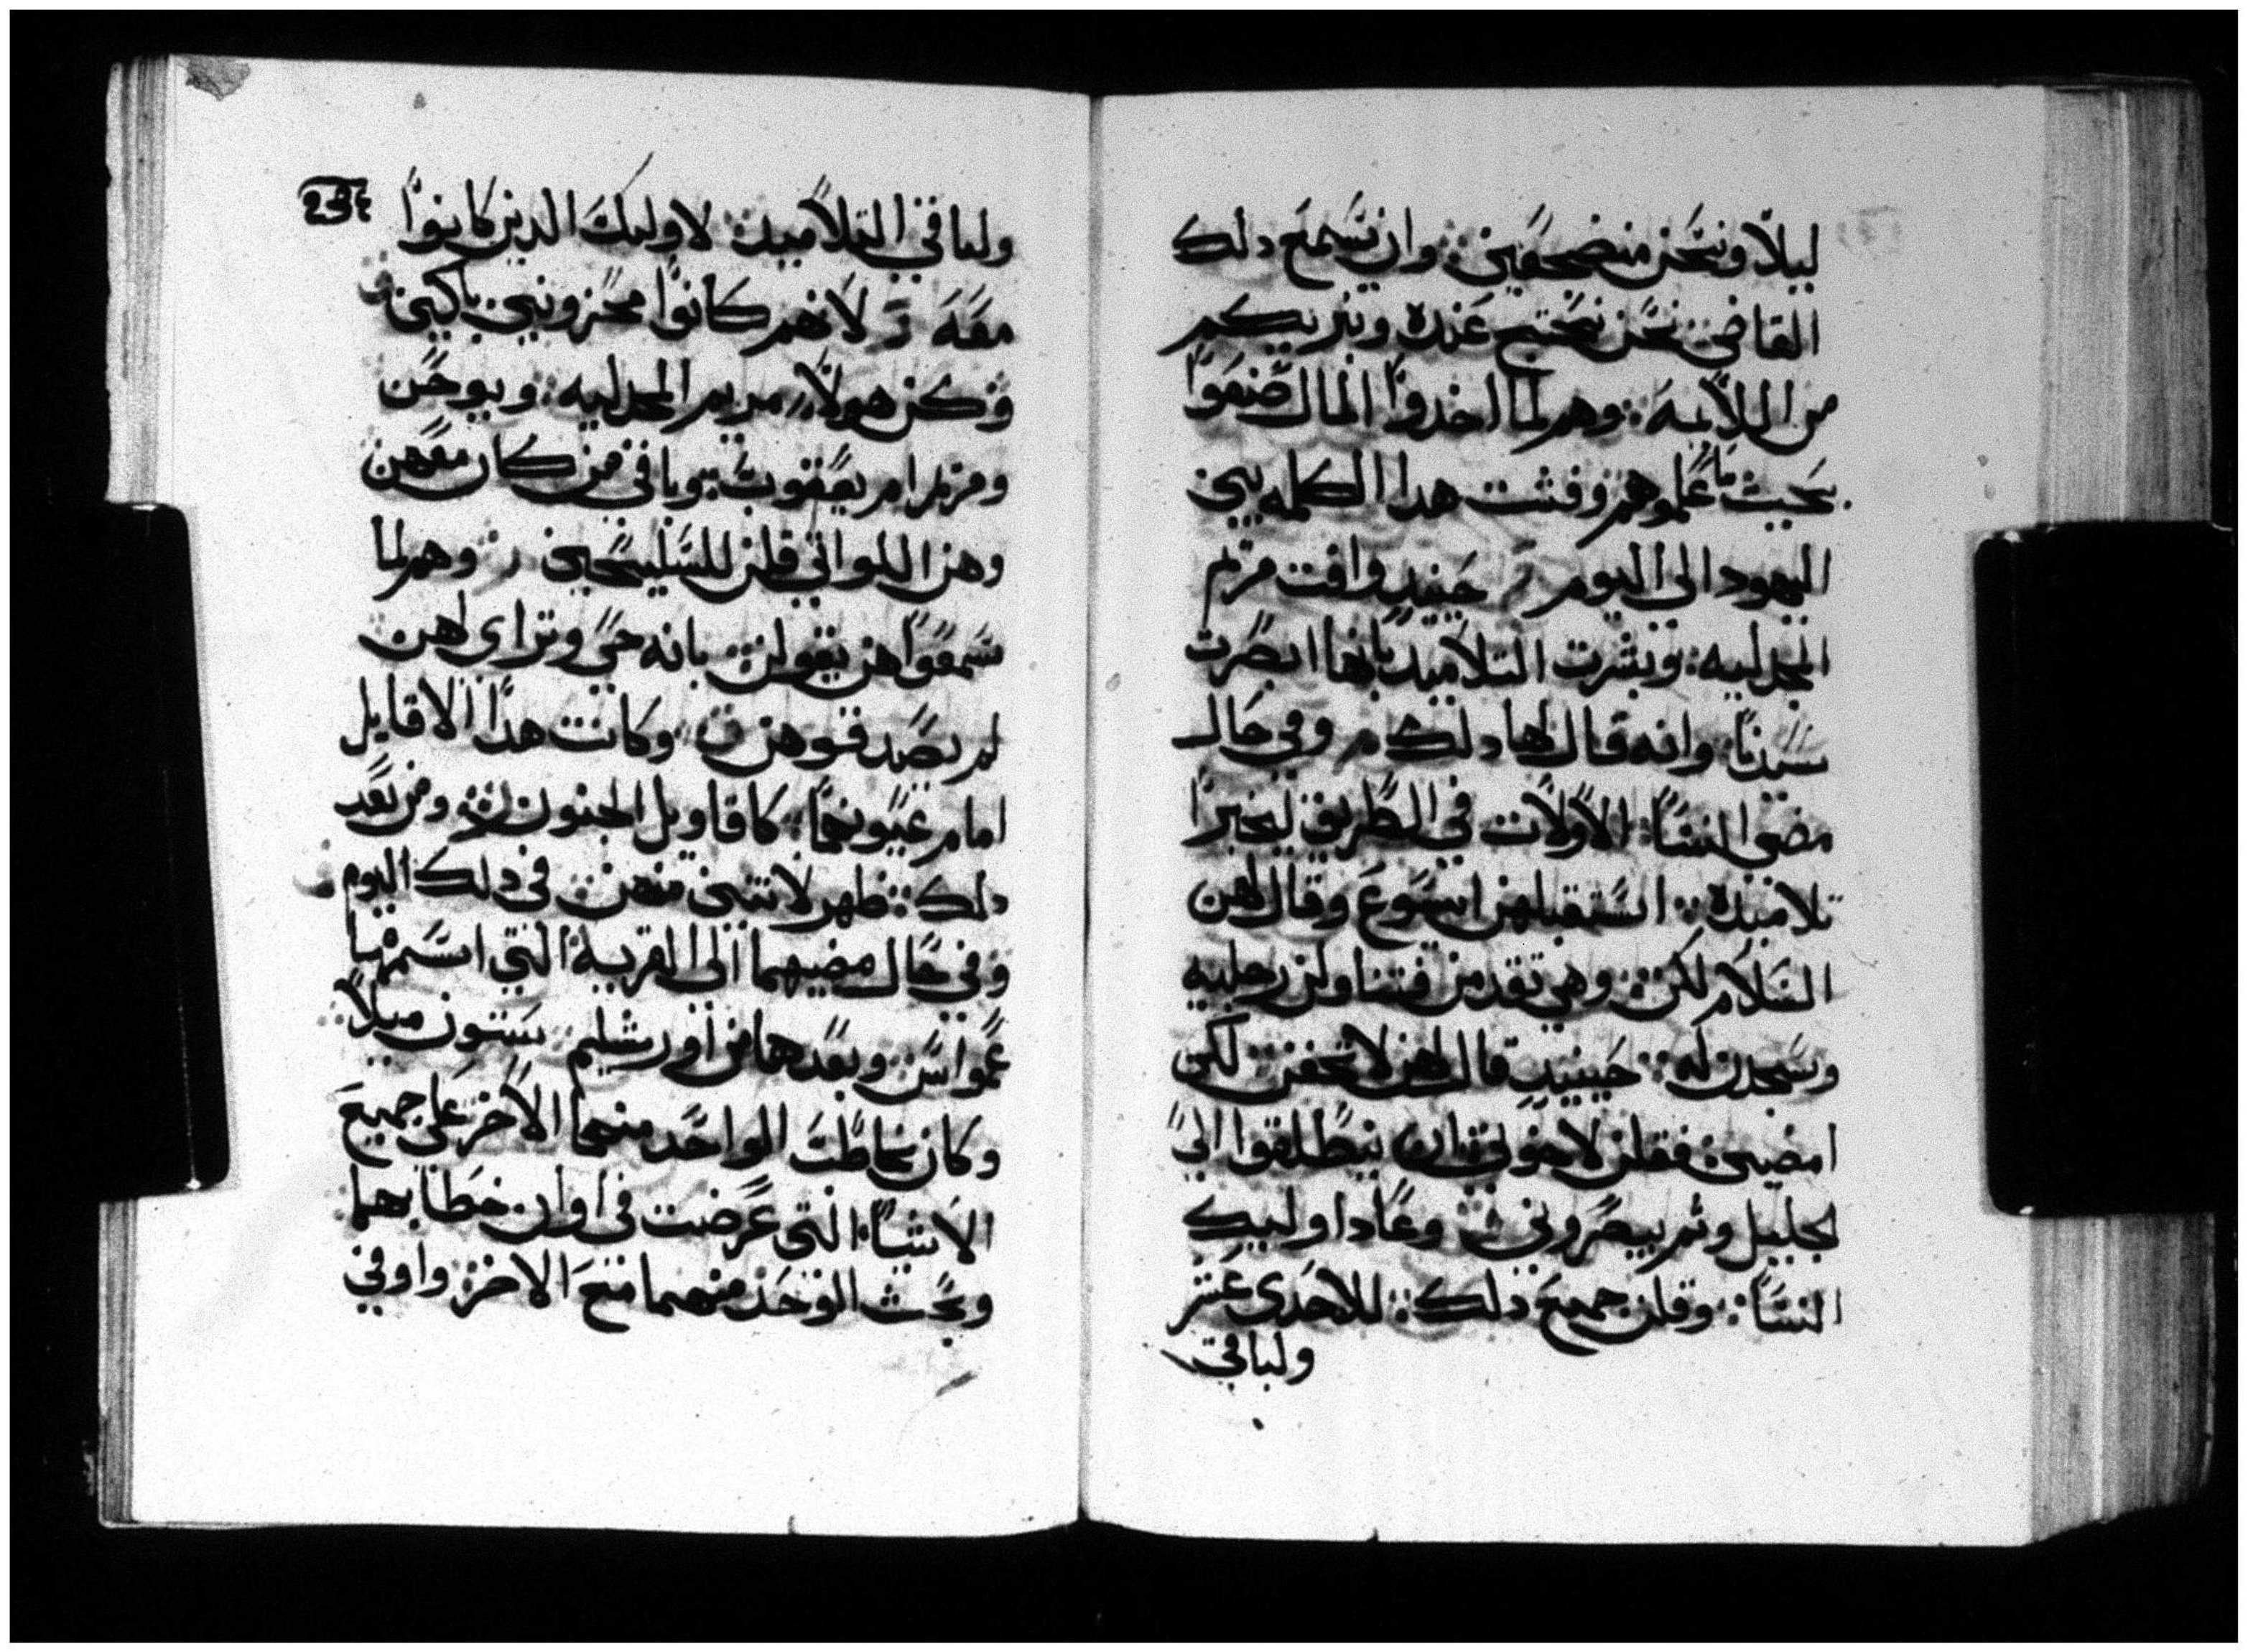 ليلاً ونحن منضجعين ܀ وان سمع دلك
القاضي ܀ نحن نحتج عنده ونبريكم
من اللايمة ܀ وهم لما اخدوا المال صنعوا
بحيث ما علموهم وفشت هدا الكلمه بين
اليهود الى اليوم ܀ حينيد وافت مريم
المجدليه ܀ وبشرت التلاميد بانها ابصرت
سيدنا ܀ وانه قال لها دلك ܀ وفي حال
مضي النسا الاولات في الطريق ليخبرا
تلاميده ܀ استقبلهن ايسوع وقال لهن
السلام لكن ܀ وهي تقدمن فتناولن رجليه
وسجدن له ܀ حينيد قال لهن لا تخفن ܀ لكن
امضين ܀ فقلن لاخوتي ܀ ان ينطلقوا الى
الجليل وثم يبصروني ܀ وعادا وليك
النسا ܀ وقلن جميع دلك ܀ للاحدى عشر
ولباقي
234
ولباقي التلاميد ܀ لاوليك الدين كانوا
معه ܀ لانهم كانوا محزونين باكين
وكن هولا ܀ مريم المجدليه ܀ ويوحن
ومريم ام يعقوب ܀ وباقي من كان معهن
وهن اللواتي قلن للسليحين ܀ وهم لما
سمعوا هن يقولن ܀ بانه حي وتراى لهن
لم يصدقوهن ܀ وكانت هدا الاقايل
امام عيونهما ܀ كاقاويل الجنون ܀ ومن بعد
دلك ܀ ظهر لاتنين منهن ܀ في دلك اليوم
وفي حال مضيهما الى القرية التي اسمها
عمواس ܀ وبعدهما من اورشليم ܀ ستون ميلاً
وكان يخاطب الواحد منهما الاخر على جميع
الاشيا التي عرضت في اوان خطابهما
وبحث الوحد منهما مع الاخر ܀ وافي